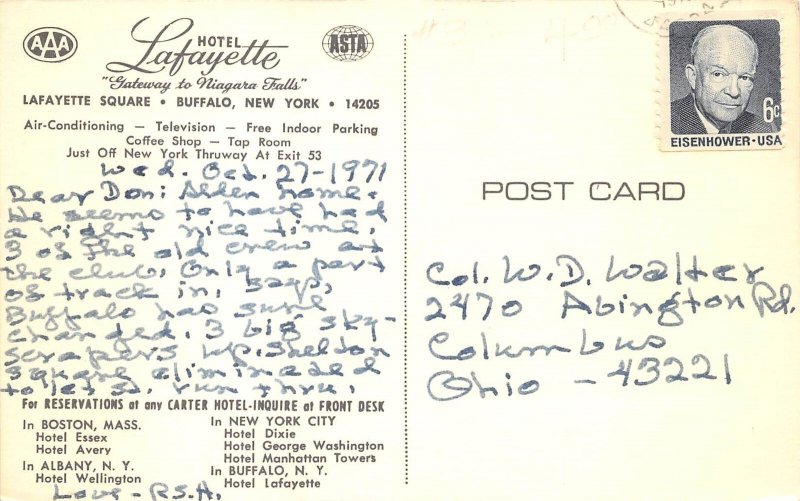 AAA
HOTEL
Lafayette
ASTA
"Gateway to Niagara Falls"
LAFAYETTE SQUARE • BUFFALO, NEW YORK • 14205
Air-Conditioning — Television — Free Indoor Parking
Coffee Shop — Tap Room
Just Off New York Thruway At Exit 53
Wed. Oct. 27-1971
Dear Don: Alden home.
He seems to have had
a right nice time.
3 of the old crew at
the club. Only a part
of track in, says,
Buffalo has sure
changed. 3 big sky-
scrapers up. Sheldon
Square eliminaded
to let S. run thru.
For RESERVATIONS at any CARTER HOTEL-INQUIRE at FRONT DESK
In BOSTON, MASS.
Hotel Essex
Hotel Avery
In ALBANY, N. Y.
Hotel Wellington
In NEW YORK CITY
Hotel Dixie
Hotel George Washington
Hotel Manhattan Towers
In BUFFALO, N. Y.
Hotel Lafayette
Love - R.S.H.
6c
EISENHOWER·USA
POST CARD
Col. W. D. Walter
2470 Abington Rd.
Columbus
Ohio - 43221